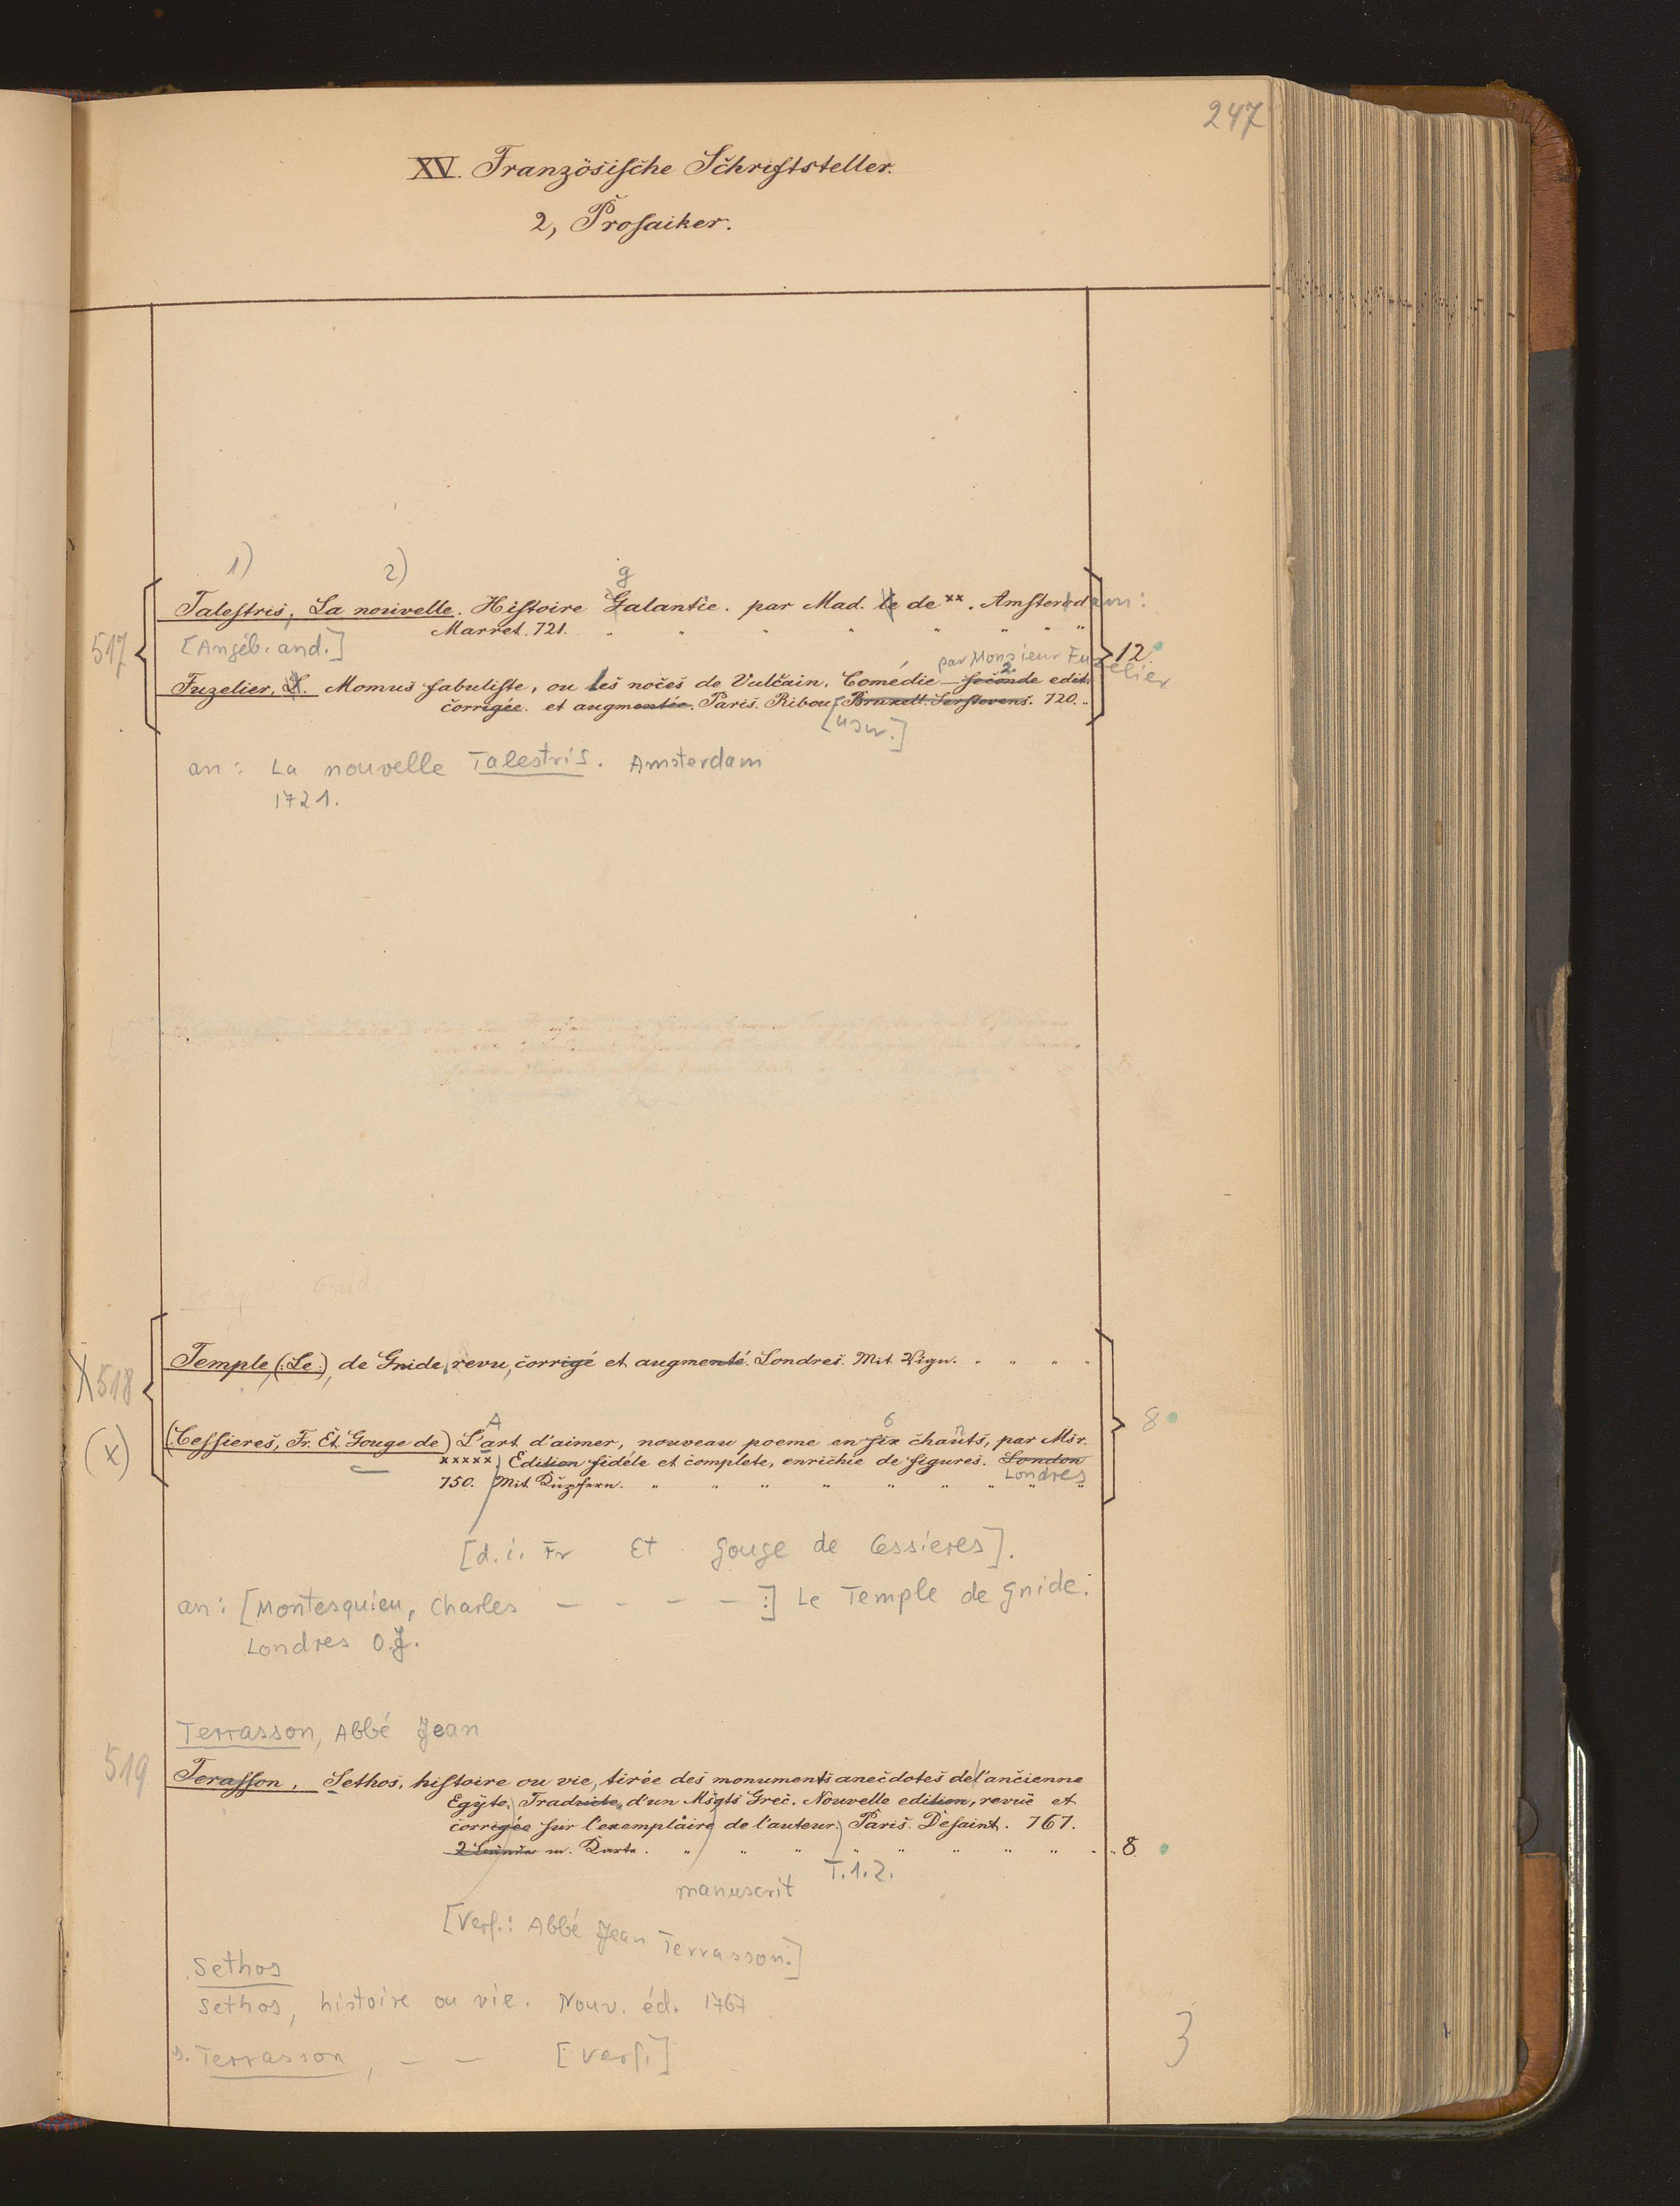 247
XV. Französische Schriftsteller.
2, Prosaiker.
1) 2) g
517
Talestris, La nouvelle. Histoire Galantie. par Mad. le de xx. Amsterdam:
Marret. 721. " " " " " " " "
[Angeb. and.]
12.
par Monsieur Fuzelier
2.
Fuzelier, L. Momus fabuliste, ou les noces de Vulcain, Comédie — seconde edit.
corrigée. et augmentée. Paris. Ribou, Bruxell. Serstevens. 720. "
[usw.]
an: La nouvelle Talestris. Amsterdam
1721.
X518
Temple, (:Le:), de Gnide, revu, corrigé et augmenté. Londres. Mit Vign. " " " "
8
(x)
A 6 n
(Cessieres, Fr. Et. Gouge de) L'art d'aimer, nouveau poeme en six chants, par Msr.
xxxxx. Edition fidéle et complete, enrichie de figures. London
Londres
750. Mit Kupfern. " " " " " " " " "
[d. i. Fr Et. Gouge de Cessieres].
an: [Montesquieu, Charles — - - — :] Le Temple de Gnide.
Londres O.J.
Terrasson, Abbé Jean
519
Terasson, Sethos, histoire ou vie, tirée des monuments anecdotes de l'ancienne
Egÿte. Traduicte, d'un Msgts Grec. Nouvelle edition, revuë et
corrigée sur l'exemplaire de l'auteur. Paris. Desaint. 767.
2 Bände m. Karte. " " " " " " " " " 8
T. 1. 2.
manuscrit
[Verf.: Abbé Jean Terrasson.]
Sethos
Sethos, histoire ou vie. Nouv. éd. 1767
s. Terrasson, — — [Verf.]
3